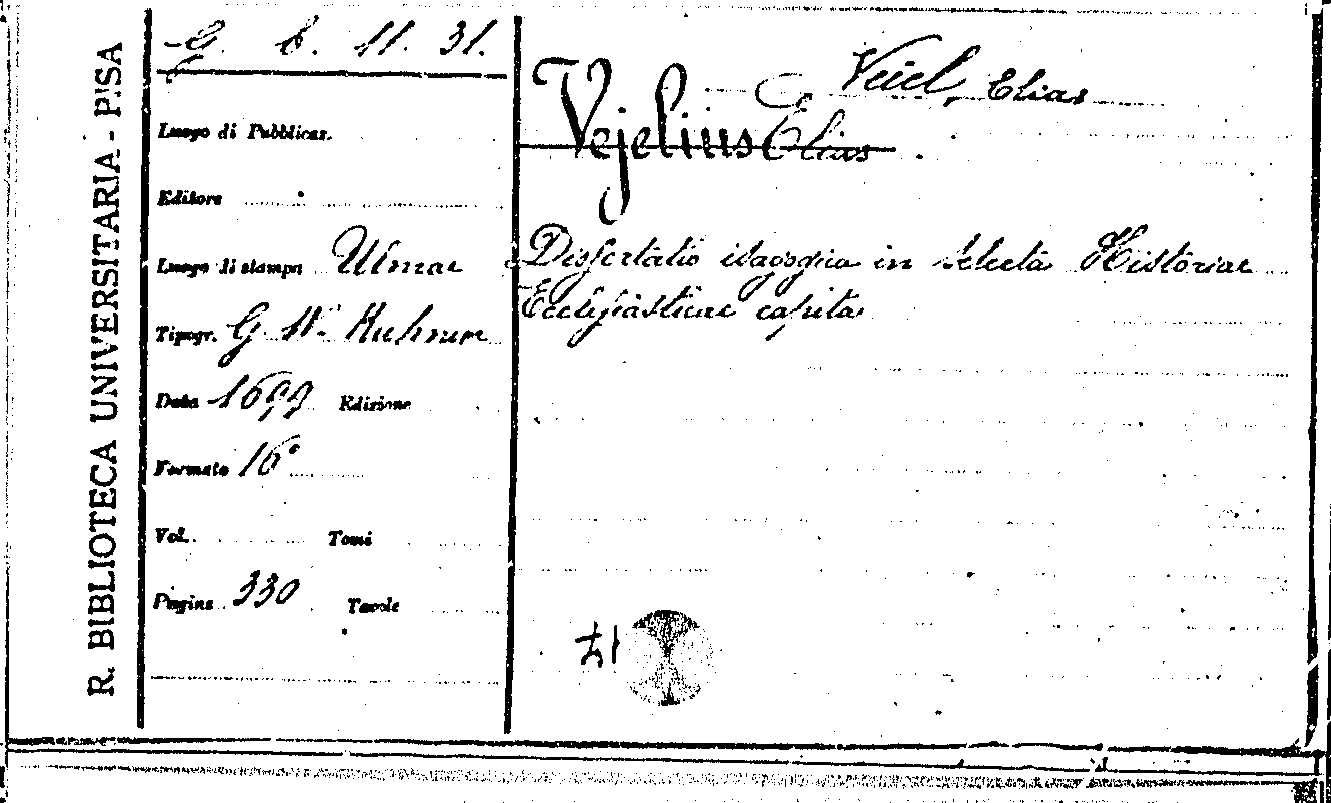 R. BIBLIOTECA UNIVERSITARIA - PISA
G. b. 11. 31.
Luogo di Pubblicaz.
Editore
Luogo di stampa Ulmae
Tipogr. G. W. Kuhnen
Data 1699 Edizione
Formato 16°
Vol. Tomi
Pagine 330 Tavole
Veiel, Elias
Vejelius Elias
Dissertatio isagogica in selecta Historiae
Ecclesiasticae capita